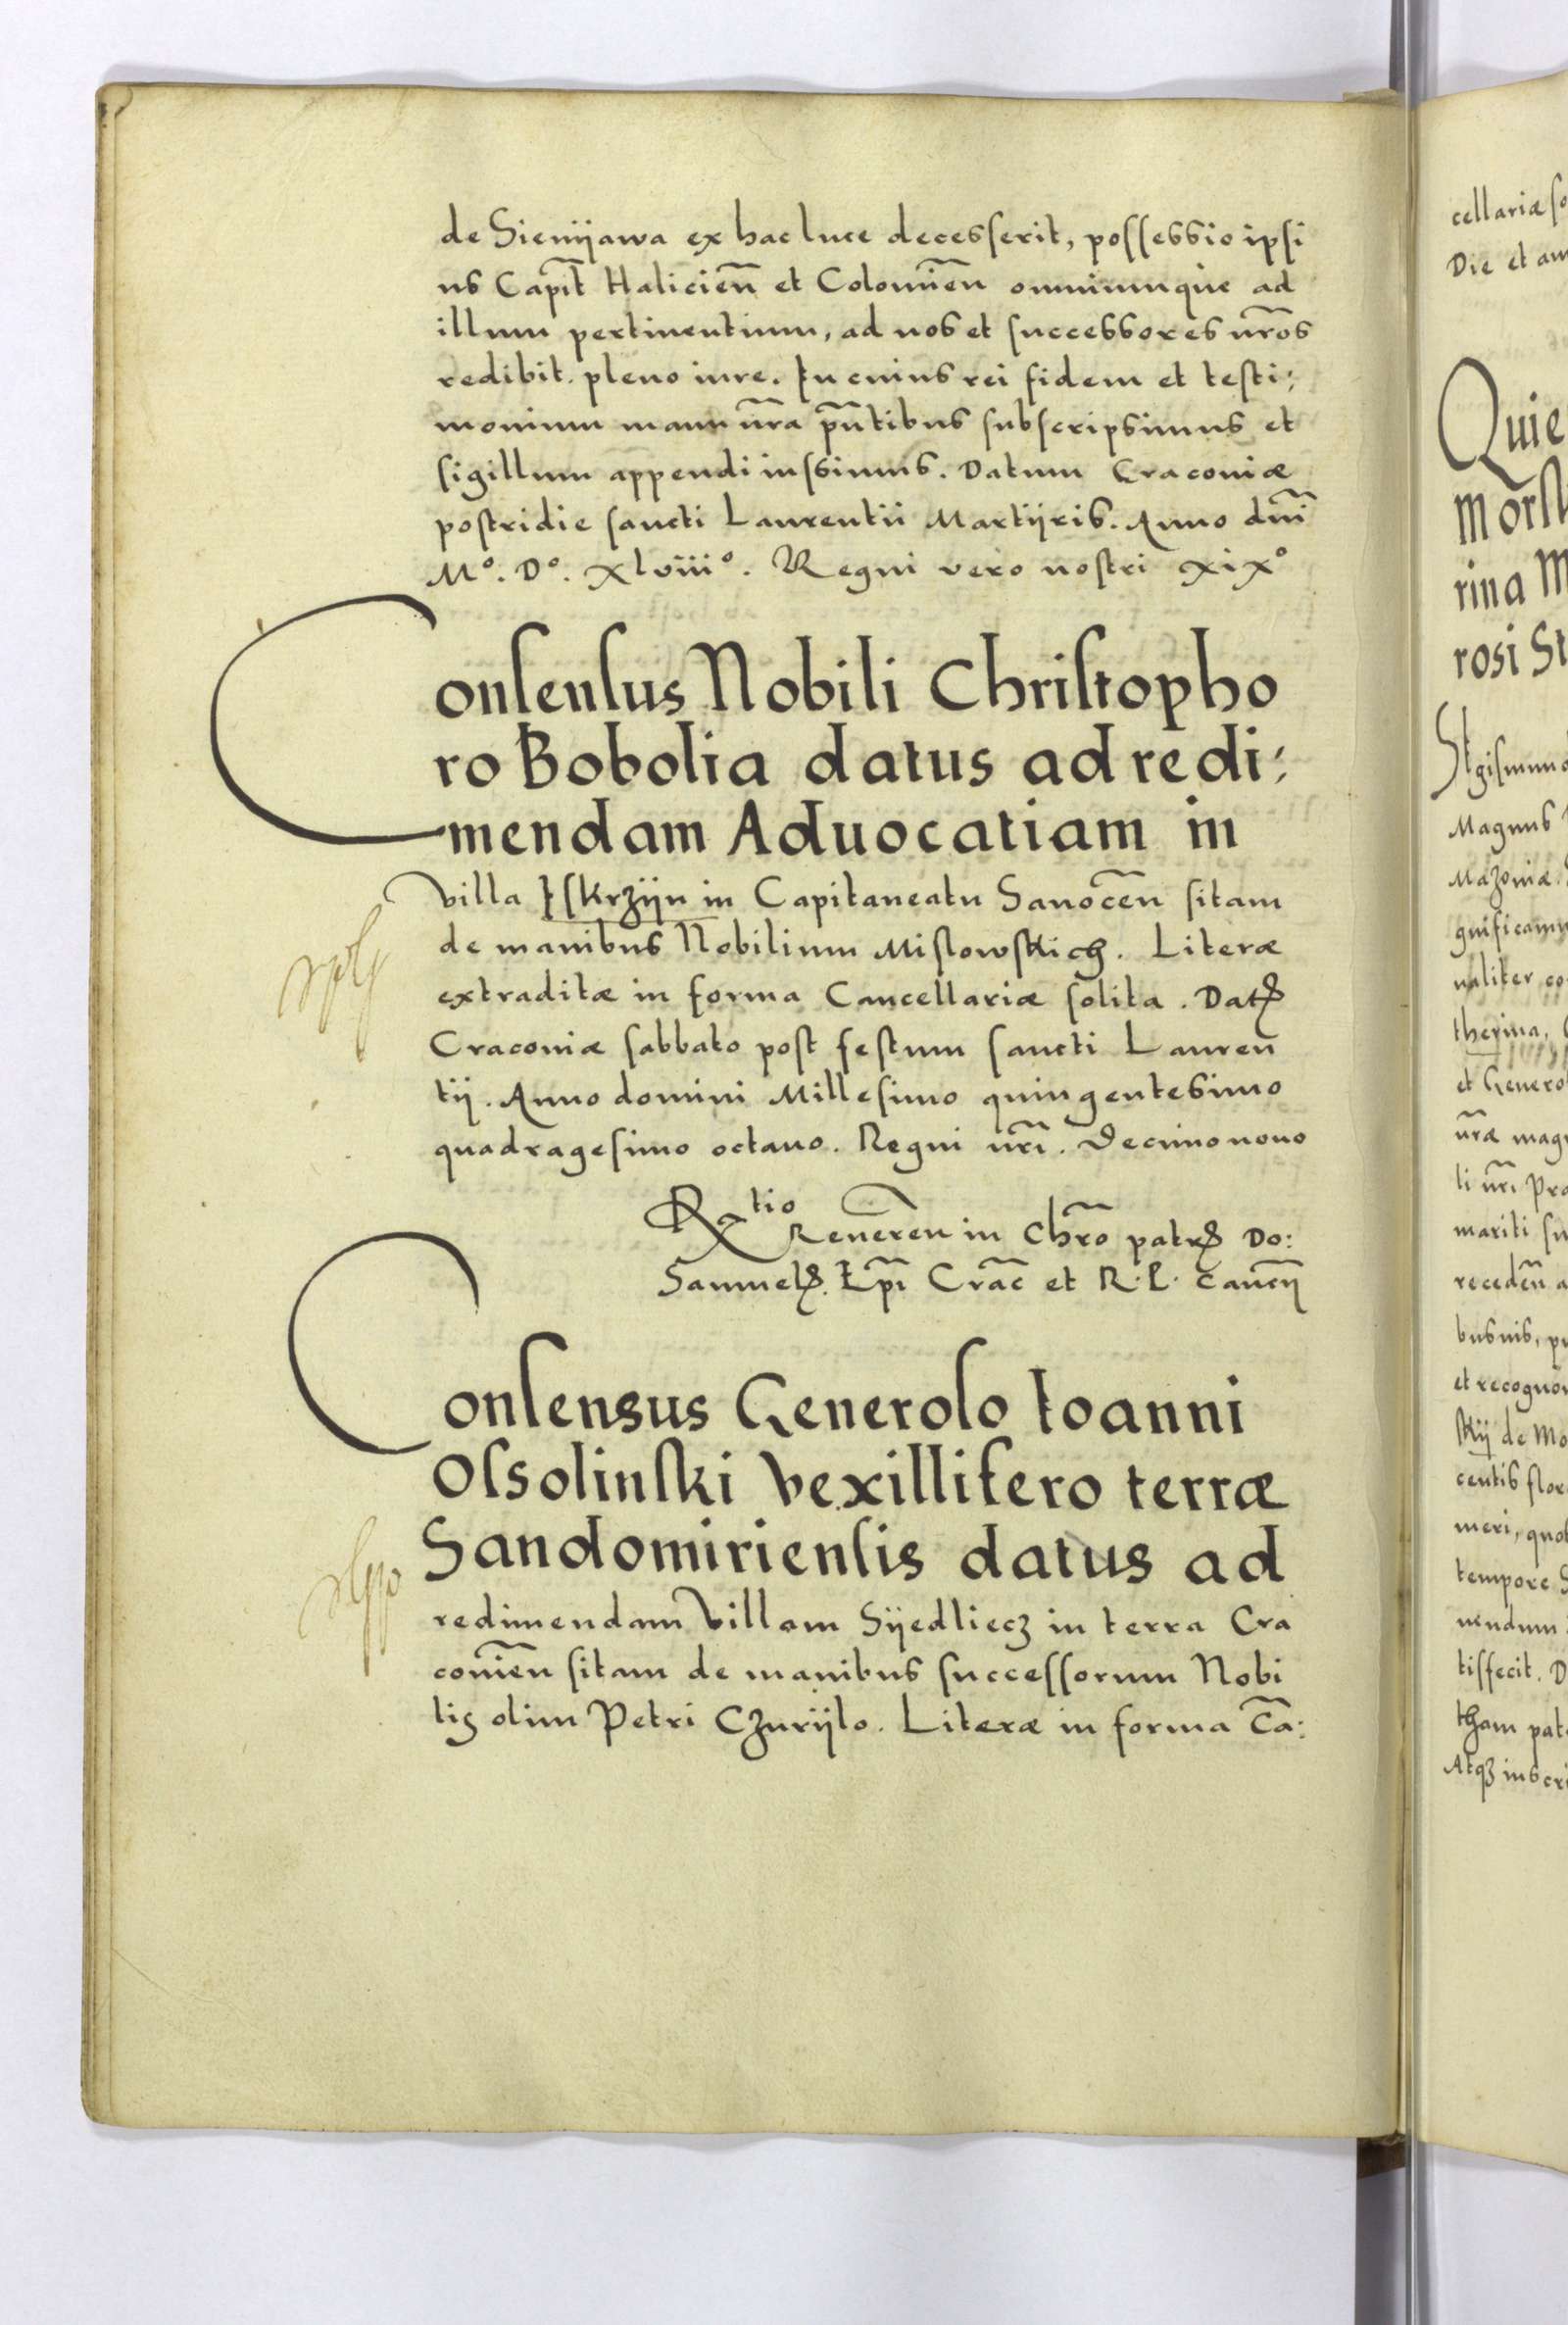 de Sienijawa ex hac luce decesserit, possessio ipsi
us Capit̄ Halicien̄ et Colomien̄ omniumque ad
illum pertinentium, ad nos et successores nr̄os
redibit. pleno iure. In cuius rei fidem et testi:
monium manu nr̄a pn̄tibus subscripsimus et
sigillum appendi iussimus. Datum Craconiæ
postridie sancti Laurentii Martijris. Anno dn̄i
Mº. Dº. Xlviiiº. Regni vero nostri xixº
Consensus Nobili Christopho
ro Bobolia datus ad redi:
mendam Aduocatiam in
villa Iskrzijn in Capitaneatu Sanocen̄ sitam
de manibus Nobilium Mislowskich. Literæ
extraditæ in forma Cancellariæ solita. Datꝭ
Craconiæ sabbato post festum sancti Lauren
tij. Anno domini Millesimo quingentesimo
quadragesimo octauo. Regni nr̄i. Decimonono
Rtio Reueren in Chr̄o patrꝭ Do:
Samuelꝭ. Ep̄i Crac̄ et R. P. Canc̄ij
Consensus Generoso Ioanni
Ossolinski Vexillifero terræ
Sandomiriensis datus ad
redimendam Villam Sijedliecz in terra Cra
comien̄ sitam de manibus successorum Nobi
lis olim Petri Czurijlo. Literæ in forma Cā:
cellariæ so
Die et an
Quie
Morsk
rina M
rosi St
Sigismund
Magnus
Mazoniæ.
gnificamu
naliter co
therina,
et Genero
nr̄æ magn
ti nr̄i Pra
mariti su
receden̄ a
busuis, pu
et recogno
skij de Mo
centis flor
meri, quol
tempore S
nendum
tisfecit. D
tham pat
Atqꝫ inscri